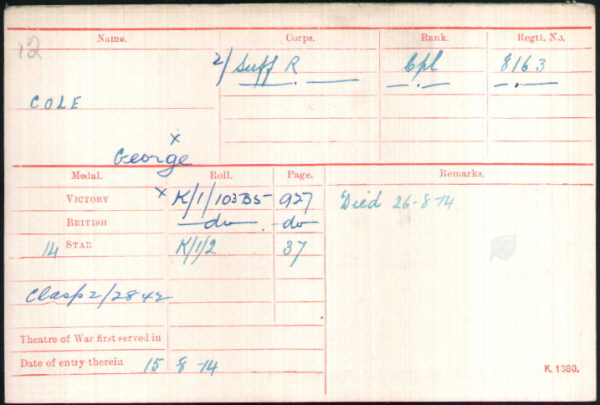 12
Name. Corps. Rank. Regtl. No.
2/ Suff R Cpl 8163
COLE
x
George
Medal. Roll. Page. Remarks.
VICTORY x K/1/103B5 927 Died 26-8-14
BRITISH do do
14 STAR K/1/2 37
Clasp 2/2842
Theatre of War first served in
Date of entry therein 15-8-14
K. 1380.